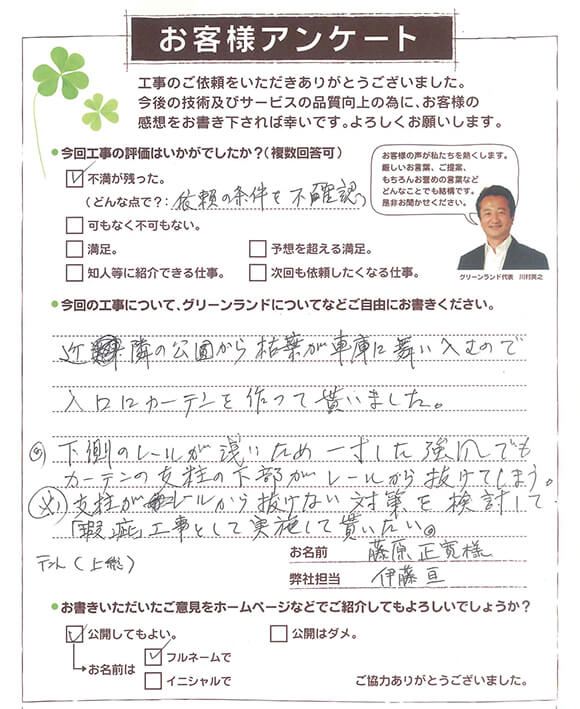 お客様アンケート
工事のご依頼をいただきありがとうございました。
今後の技術及びサービスの品質向上の為に、お客様の
感想をお書き下されば幸いです。よろしくお願いします。
●今回工事の評価はいかがでしたか?(複数回答可)
不満が残った。
(どんな点で?: 依頼の条件を不確認)
可もなく不可もない。
満足。
予想を超える満足。
知人等に紹介できる仕事。
次回も依頼したくなる仕事。
お客様の声が私たちを熱くします。
厳しいお言葉、ご提案、
もちろんお誉めの言葉など
どんなことでも結構です。
是非お聞かせください。
グリーンランド代表 川村真之
●今回の工事について、グリーンランドについてなどご自由にお書きください。
近隣の公園から枯葉が車庫に舞い込むので
入口にカーテンを作って貰いました。
下側のレールが浅いため一寸した強風でも
カーテンの支柱の下部がレールから抜けてしまう。
支柱がレールから抜けない対策を検討して
「瑕疵」工事として実施して貰いたい。
お名前 藤原正寛様
テント(上総)
弊社担当 伊藤亘
●お書きいただいたご意見をホームページなどでご紹介してもよろしいでしょうか?
公開してもよい。
公開はダメ。
お名前は
フルネームで
イニシャルで
ご協力ありがとうございました。